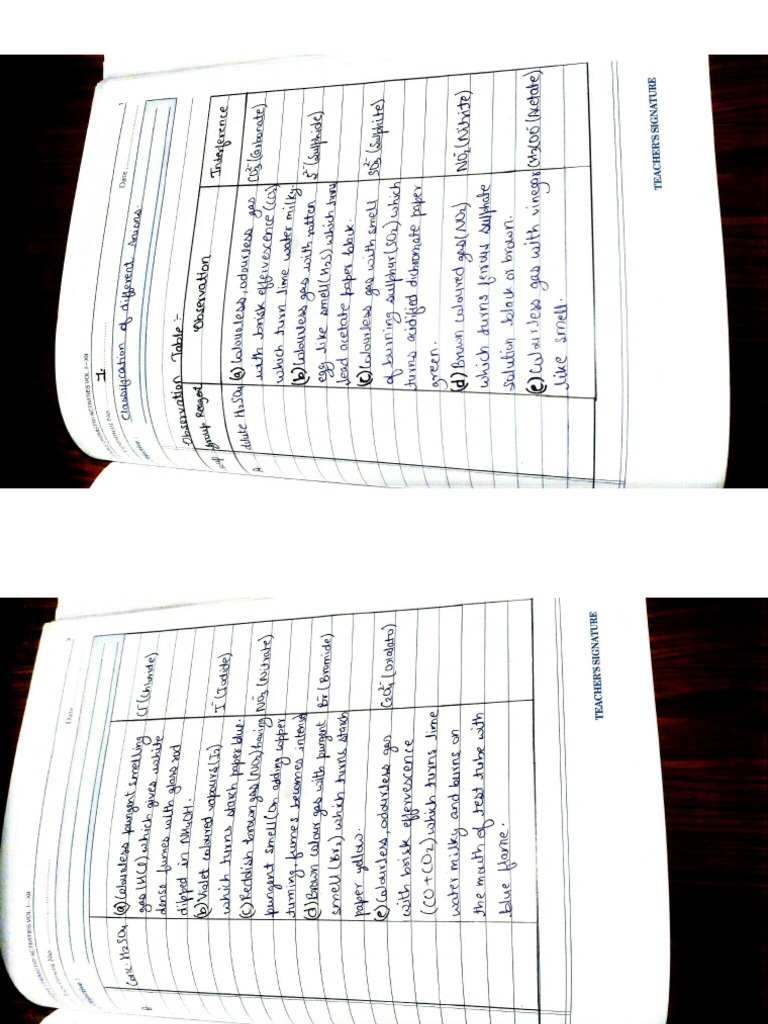 CHEMISTRY ACTIVITIES VOL. I - XII
Experiment No. 1.
Date
Classification of different anions.
Observation Table :-
Group Reagent
Observation
Interference
A
dilute H2SO4
(a) Colourless, odourless gas
with brisk effervescence (CO2)
which turn lime water milky.
CO3²⁻ (Carbonate)
(b) Colourless gas with rotten
egg like smell (H2S) which turns
lead acetate paper black.
S²⁻ (Sulphide)
(c) Colourless gas with smell
of burning sulphur (SO2) which
turns acidified dichromate paper
green.
SO3²⁻ (Sulphite)
(d) Brown coloured gas (NO2)
which turns ferrous sulphate
solution black or brown.
NO2⁻ (Nitrite)
(e) Colourless gas with vinegar
like smell.
CH3COO⁻ (Acetate)
TEACHER'S SIGNATURE
ACTIVITIES VOL. I - XII
Experiment No.
Date
B
Conc. H2SO4
(a) Colourless pungent smelling
gas (HCl) which gives white
dense fumes with glass rod
dipped in NH4OH.
Cl⁻ (Chloride)
(b) Violet coloured vapours (I2)
which turns starch paper blue.
I⁻ (Iodide)
(c) Reddish brown gas (NO2) having
pungent smell (On adding copper
turning, fumes becomes intense
NO3⁻ (Nitrate)
(d) Brown colour gas with pungent
smell (Br2) which turns starch
paper yellow.
Br⁻ (Bromide)
(e) Colourless, odourless gas
with brisk effervescence
(CO + CO2) which turns lime
water milky and burns on
the mouth of test tube with
blue flame.
C2O4²⁻ (Oxalato)
TEACHER'S SIGNATURE